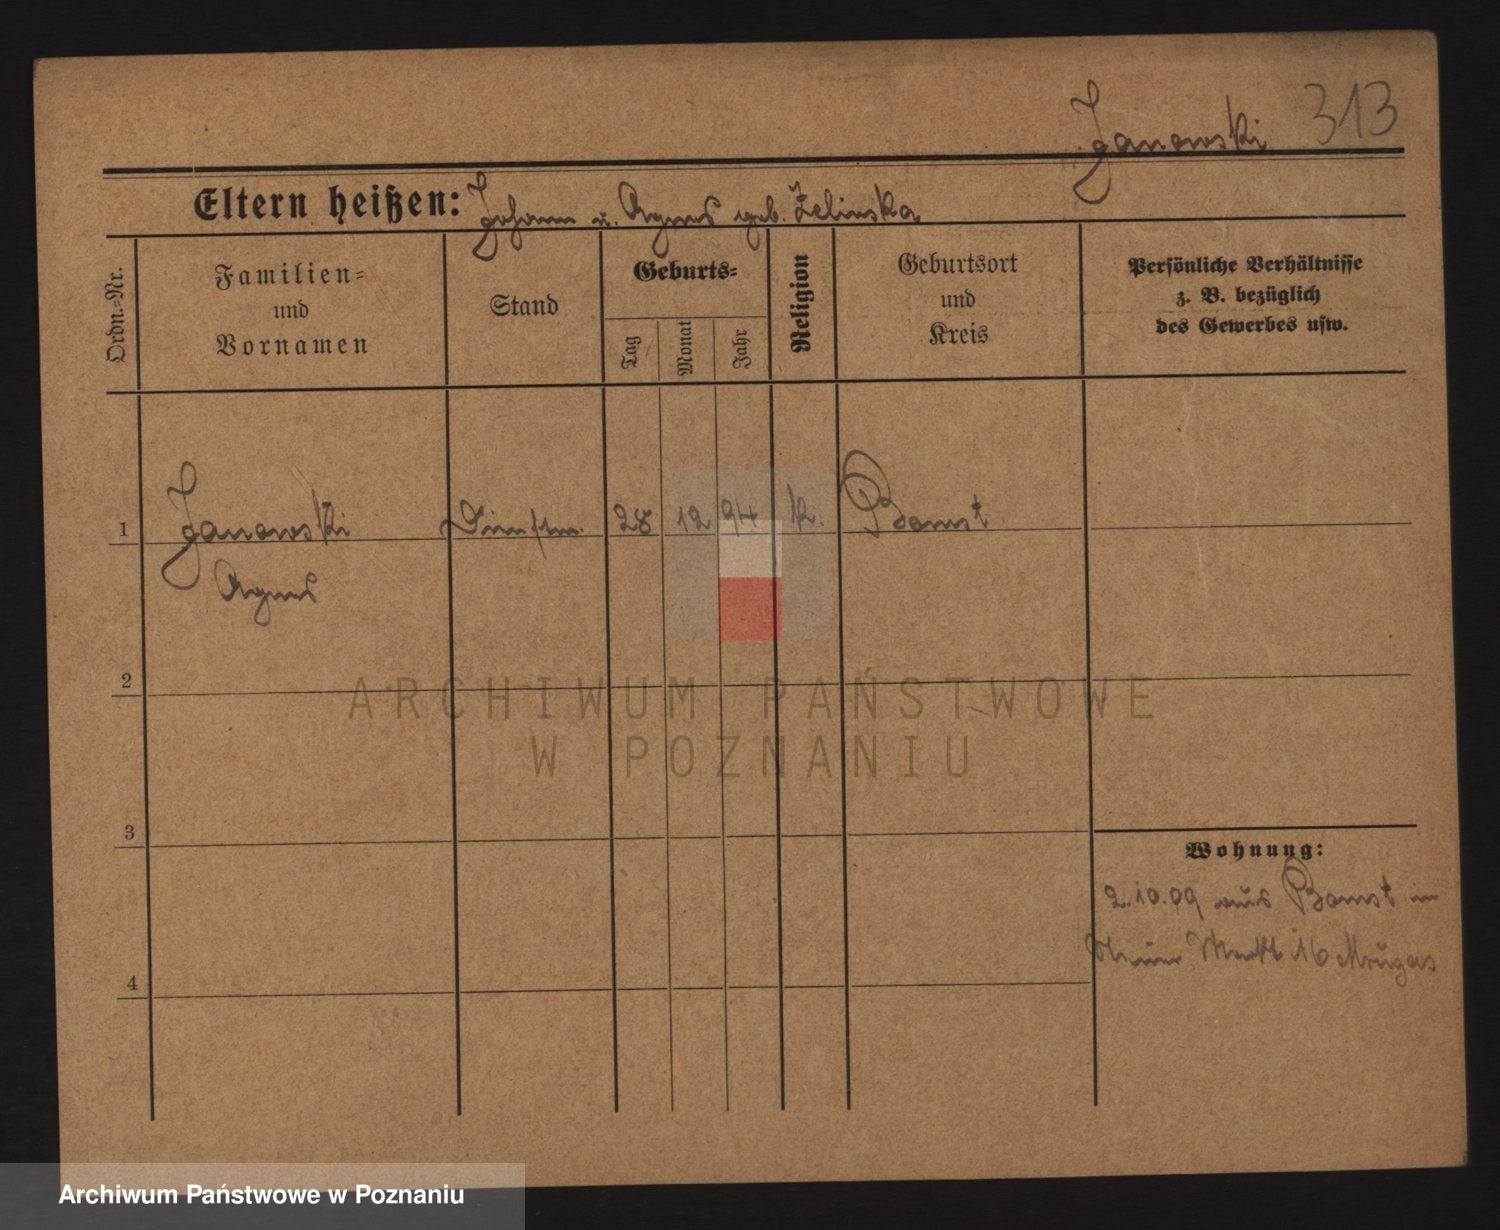 313
Janowski
Eltern heißen: Johann u. Agnes geb. Zelinska
Ordn.=Nr.
Familien=
und
Vornamen
Stand
Geburts=
Tag
Monat
Jahr
Religion
Geburtsort
und
Kreis
Persönliche Verhältnisse
z. B. bezüglich
des Gewerbes usw.
1 Janowski Dienstm. 28 12 94 k. Bomst
Agnes
2
ARCHIWUM PAŃSTWOWE
W POZNANIU
3
Wohnung:
2.10.09 aus Bomst in
Markt 16
4
Archiwum Państwowe w Poznaniu